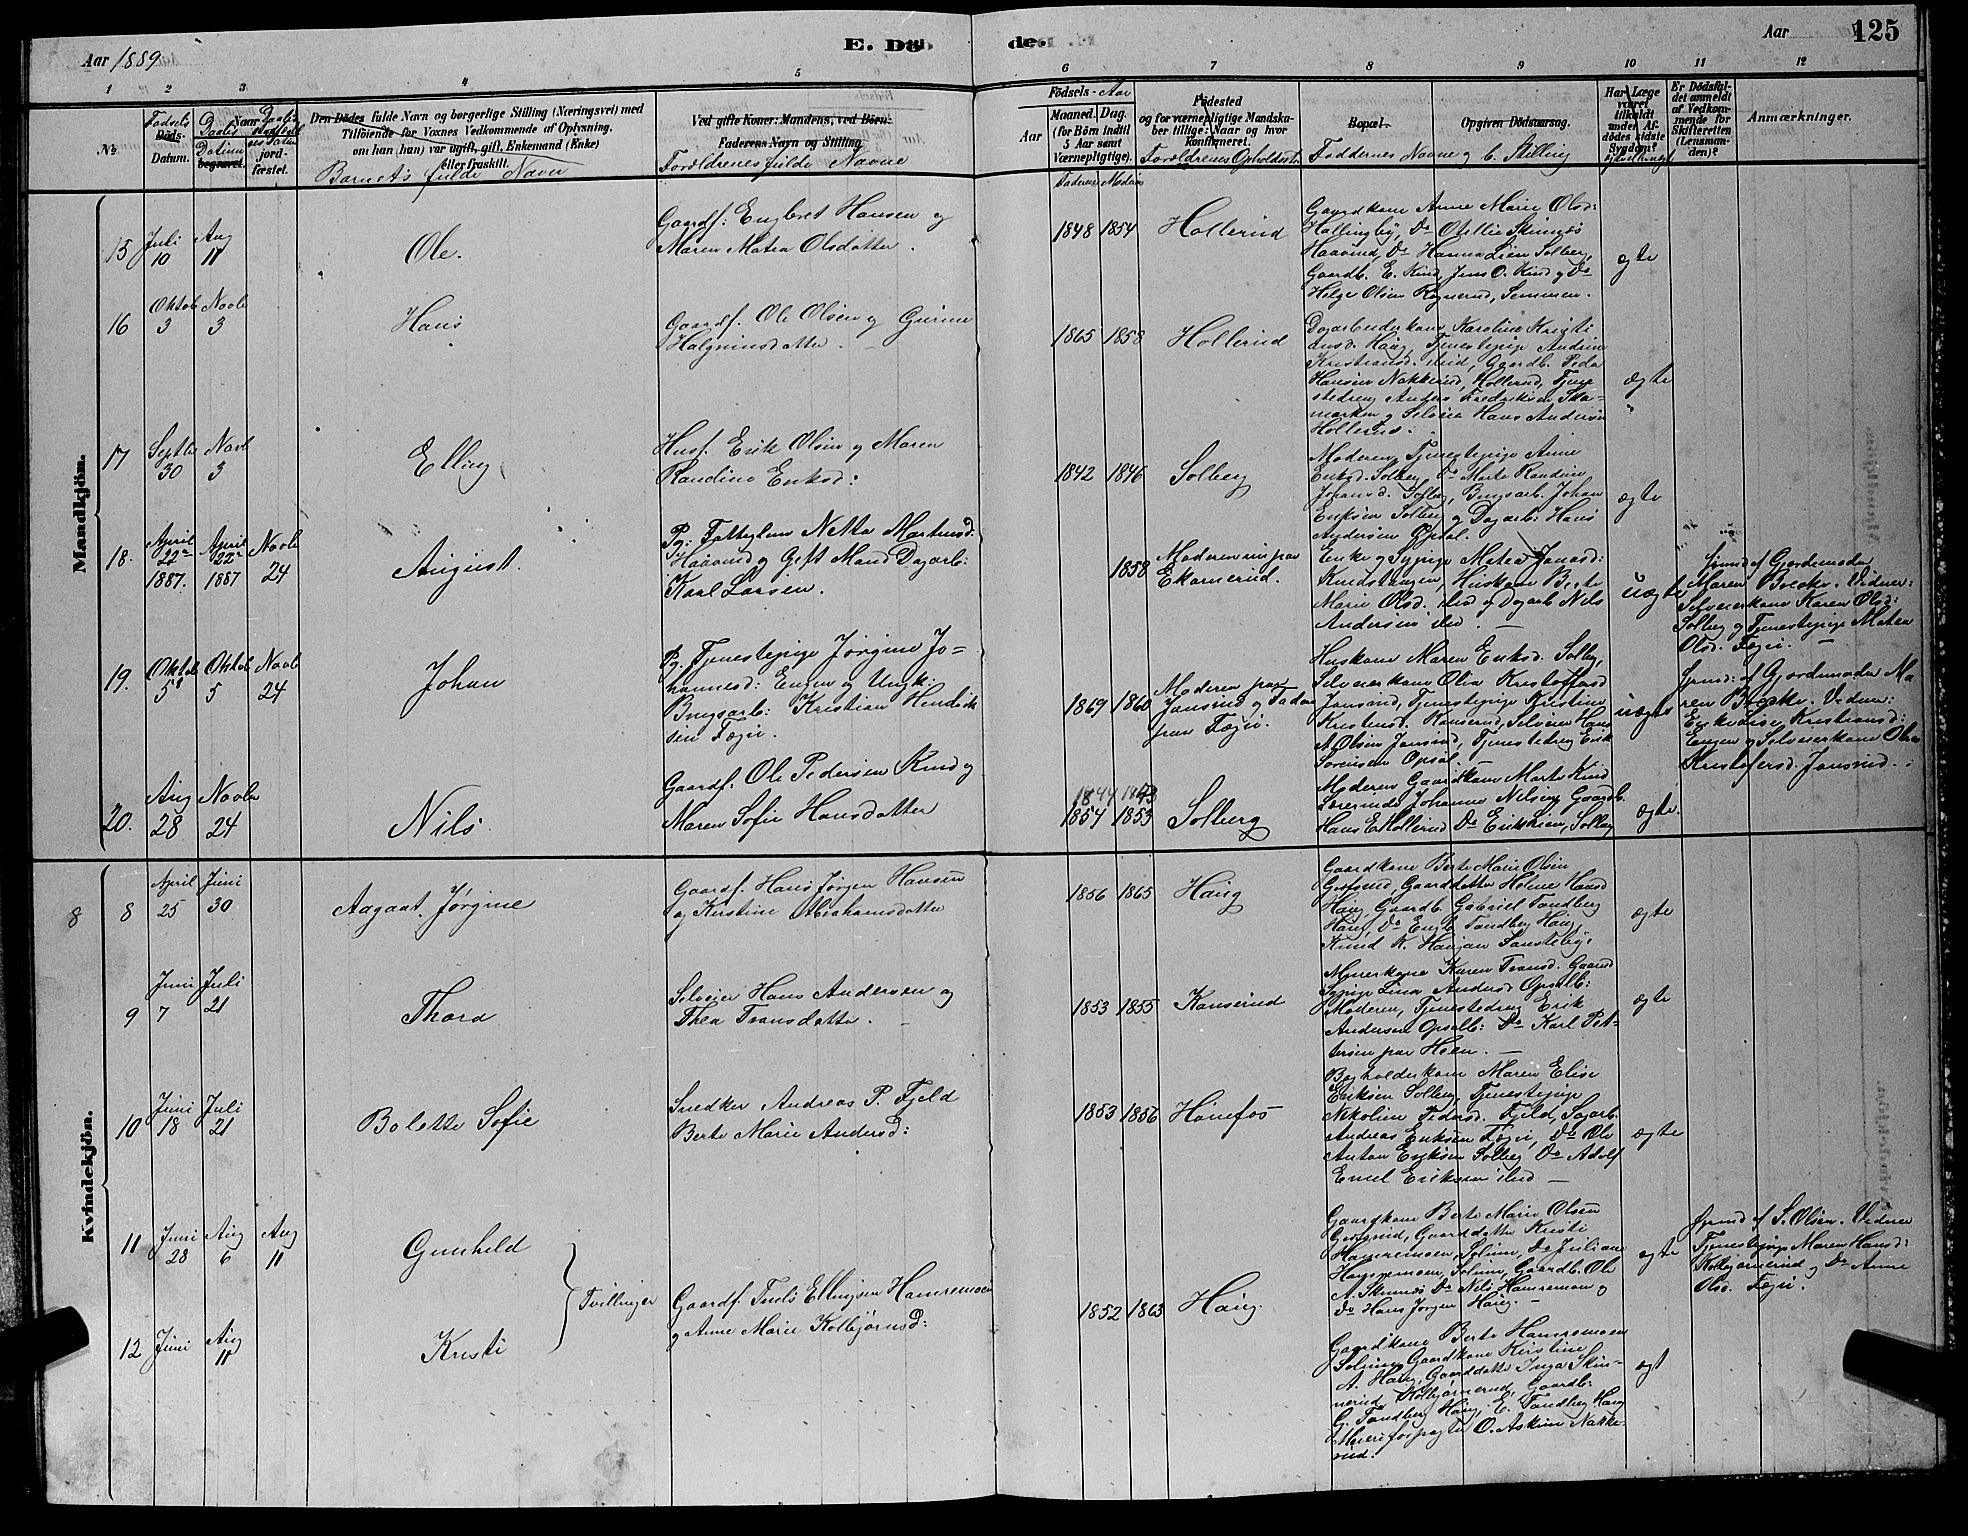 125
Aar 1889
E. Døde.
Aar
1 2 3 4 5 6 7 8 9 10 11 12
No
Fødsels
Døds-
Datum.
Daabs
Datum
begravet.
Naar Daaben
stadfæstet
jord-
fæstet.
Den Dødes fulde Navn og borgerlige Stilling (Næringsvei) med
Tilføiende for Voxnes Vedkommende af Oplysning,
om han (hun) var ugift, gift, Enkemand (Enke)
eller fraskilt.
Barnets fulde Navn
Ved gifte Koner: Mandens, ved Børn:
Faderens Navn og Stilling.
Forældrenes fulde Navne
Fødsels-Aar
Aar
Maaned. Dag.
(for Børn indtil
5 Aar samt
Værnepligtige).
Faderens Moderens
Fødested
og for værnepligtige Mandska-
ber tillige: Naar og hvor
konfirmeret.
Forældrenes Opholdssted
Bopæl.
Opgiven Dødsaarsag.
Faddernes Navne og b. Stilling
Har Læge
været
tilkaldt
under Af-
dødes sidste
Sygdom?
Er Dødsfal-
det anmeldt
af Vedkom-
mende for
Skifteretten
(Lensman-
den)?
Anmærkninger.
Mandkjøn.
15 Juli 10 Aug 11 Ole.
Gaardf. Engbret Hansen og
Maren Matea Olsdatter.
1848 1854 Hollerud
Gaardkone Anne Marie Olsd:
Hallingby, Do Otellie Skinnes
Haavind, Do Hanna Lien Solberg,
Gaardb. E. Kind, Jens O. Kind og Do
Helge Olsen Rognerud, Semmen.
ægte
16 Oktob 3 Novb 3 Hans
Gaardf. Ole Olsen og Gurine
Halgrimsdatter.
1865 1858 Hollerud
Dagarbeiderkone Karoline Kristi
ansd. Haug, Tjenestepige Andrine
Kristiansd. ibid, Gaardb. Peder
Hansen Nakkerud, Hollerud, Tjene
stedreng Anders Fredriksen Ska-
marken og Selveier Hans Andersen
Hollerud.
ægte
17 Septbr 30 Novb 3 Elling
Husf. Erik Olsen og Maren
Randine Eriksd:
1842 1846 Solberg
Moderen, Tjenestepige Anne
Eriksd. Solberg, Do Marte Randine
Johansd. Solberg, Brugsarb. Johan
Eriksen Solberg og Dagarb: Hans
Andersen Opsal.
ægte
18. April 22de 1887. April 22de 1887 Novb 24 August.
Pg: Fattiglem Netta Martinsd.
Haavind og Gift Mand Dagarb:
Karl Larsen.
1858 Moderen paa
Ekornerud.
Enke og Sypige Matea Jonasd:
Knestangen, Huskone Berte
Marie Olsd. ibid og Dagarb Nils
Andersen ibid.
uægte
hjmd af Gjordemoder
Maren Brække. Vidner:
Selveierkone Karen Olsd:
Solberg og Tjenestepige Matea
Olsd. Fægri.
19. Oktob 5te Oktob 5 Novb 24 Johan
Pg. Tjenestepige Jørgine Jo-
hannesd: Engen og Ungk:
Brugsarb: Kristian Hendrik
sen Fægri.
1869 1860 Moderen paa
Jonsrud og Faderen
paa Fægri.
Huskone Maren Eriksd. Solberg,
Selveierkone Olea Kristoffersd
Jonsrud, Tjenestepige Kristine
Kristensd. Hanserud, Selveier Hans
A. Olsen Jonsrud, Tjenestedreng Erik
Sørensen Opsal.
uægte
hjmd: af Gjordemoder Ma
ren Brække. Vidner:
Kristiansd:
Engen og Selveierkone Olea
Kristofersd. Jonsrud.
20. Aug 28 Novbr 24 Nils.
Gaardf. Ole Pedersen Kind og
Maren Sofie Hansdatter
1844 1843
1854 1853 Solberg
Moderen, Gaardkone Marte Kind
Johanne Nilsen, Gaardb.
Hans E. Hollerud Do Erik Lien, Solberg
ægte.
Kvindekjøn.
8
8 April 25 Juni 30 Aagaat Jørgine
Gaardf. Hans Jørgen Hansen
og Kirstine Abrahamsdatter
1856 1865 Haug
Gaardkone Berte Marie Olsen
Gjersund, Gaarddatter Helene Hansd
Haug, Gaardb. Gabriel Tandberg
Haug, Do Engb. Tandberg Haug,
Knud K. Haugan Sønsteby.
ægte
9 Juni 7 Juli 21 Thora
Selveier Hans Andersen og
Thea Iversdatter.
1853 1855 Kanserud
Murerkone Karen Iversd. Gaarud
Sypige Lina Andersd Opsalb:
Moderen, Tjenestedreng Erik
Andersen Opsalb: Do Karl Pet-
tersen paa Heen.
ægte
10 Juni 18 Juli 21 Bolette Sofie
Snedker Andreas P. Fjeld
Berte Marie Andersd:
1853 1856 Hønefos
Bogholderkone Maren Elise
Eriksen Solberg, Tjenestepige
Nikoline Pedersd. Fjeld, Sagarb.
Andreas Eriksen Fægri, Do Ole
Anton Eriksen Solberg Do Adolf
Emil Eriksen ibid
ægte
11 Juni 28 Aug 6 Aug 11 Gunhild
Tvillinger
Gaardf. Truls Ellingsen Hamremoen
og Anne Marie Kolbjørnsd:
1852 1863 Haug.
Gaardkone Berte Marie Olsen
Gjersund, Gaarddatter Kristi
Hamremoen, Solum, Do Juliane
Hamremoen, Solum, Gaardb. Ole
A. Skinnes Do Nils Hamremoen og
Do Hans Jørgen Haug.
ægte
hjmd af S. Olsen. Vidner
Tjenestepige Maren Hansd:
Kolbjørnerud og Do Anne
Olsd. Fægri.
12 Juni Aug 11 Kristi
Gaardkone Berte Hamremoen
Solum, Gaardkone Kirstine
A. Haug, Gaarddatter Inga Skin-
nerud, Kolbjørnerud, Gaardb:
G. Tandberg Haug, E. Tandberg Haug
Meieriforpagter O. Askim Nakke-
rud.
ægt